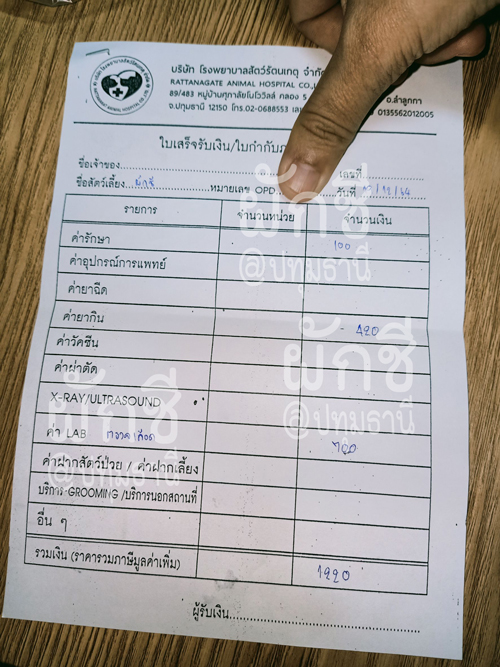 บริษัท โรงพยาบาลสัตว์รัตนเกตุ จำกัด
RATTANAGATE ANIMAL HOSPITAL CO.,
89/483 หมู่บ้านศุภาลัยโนโววิลล์ คลอง 5 อ.ลำลูกกา
จ.ปทุมธานี 12150 โทร.02-0688553 0135562012005
ใบเสร็จรับเงิน/ใบกำกับ
ชื่อเจ้าของ เลขที่
ชื่อสัตว์เลี้ยง ผักชี หมายเลข OPD. วันที่ /12/64
รายการ จำนวนหน่วย จำนวนเงิน
ค่ารักษา 100
ค่าอุปกรณ์การแพทย์
ค่ายาฉีด
ค่ายากิน 420
ค่าวัคซีน
ค่าผ่าตัด
X-RAY/ULTRASOUND
ค่า LAB ตรวจเลือด 700
ค่าฝากสัตว์ป่วย / ค่าฝากเลี้ยง
บริการ GROOMING /บริการนอกสถานที่
อื่น ๆ
รวมเงิน (ราคารวมภาษีมูลค่าเพิ่ม) 1220
ผู้รับเงิน
ผักชี
@ปทุมธานี
ผักชี
@ปทุมธานี
ผักชี
@ปทุมธานี